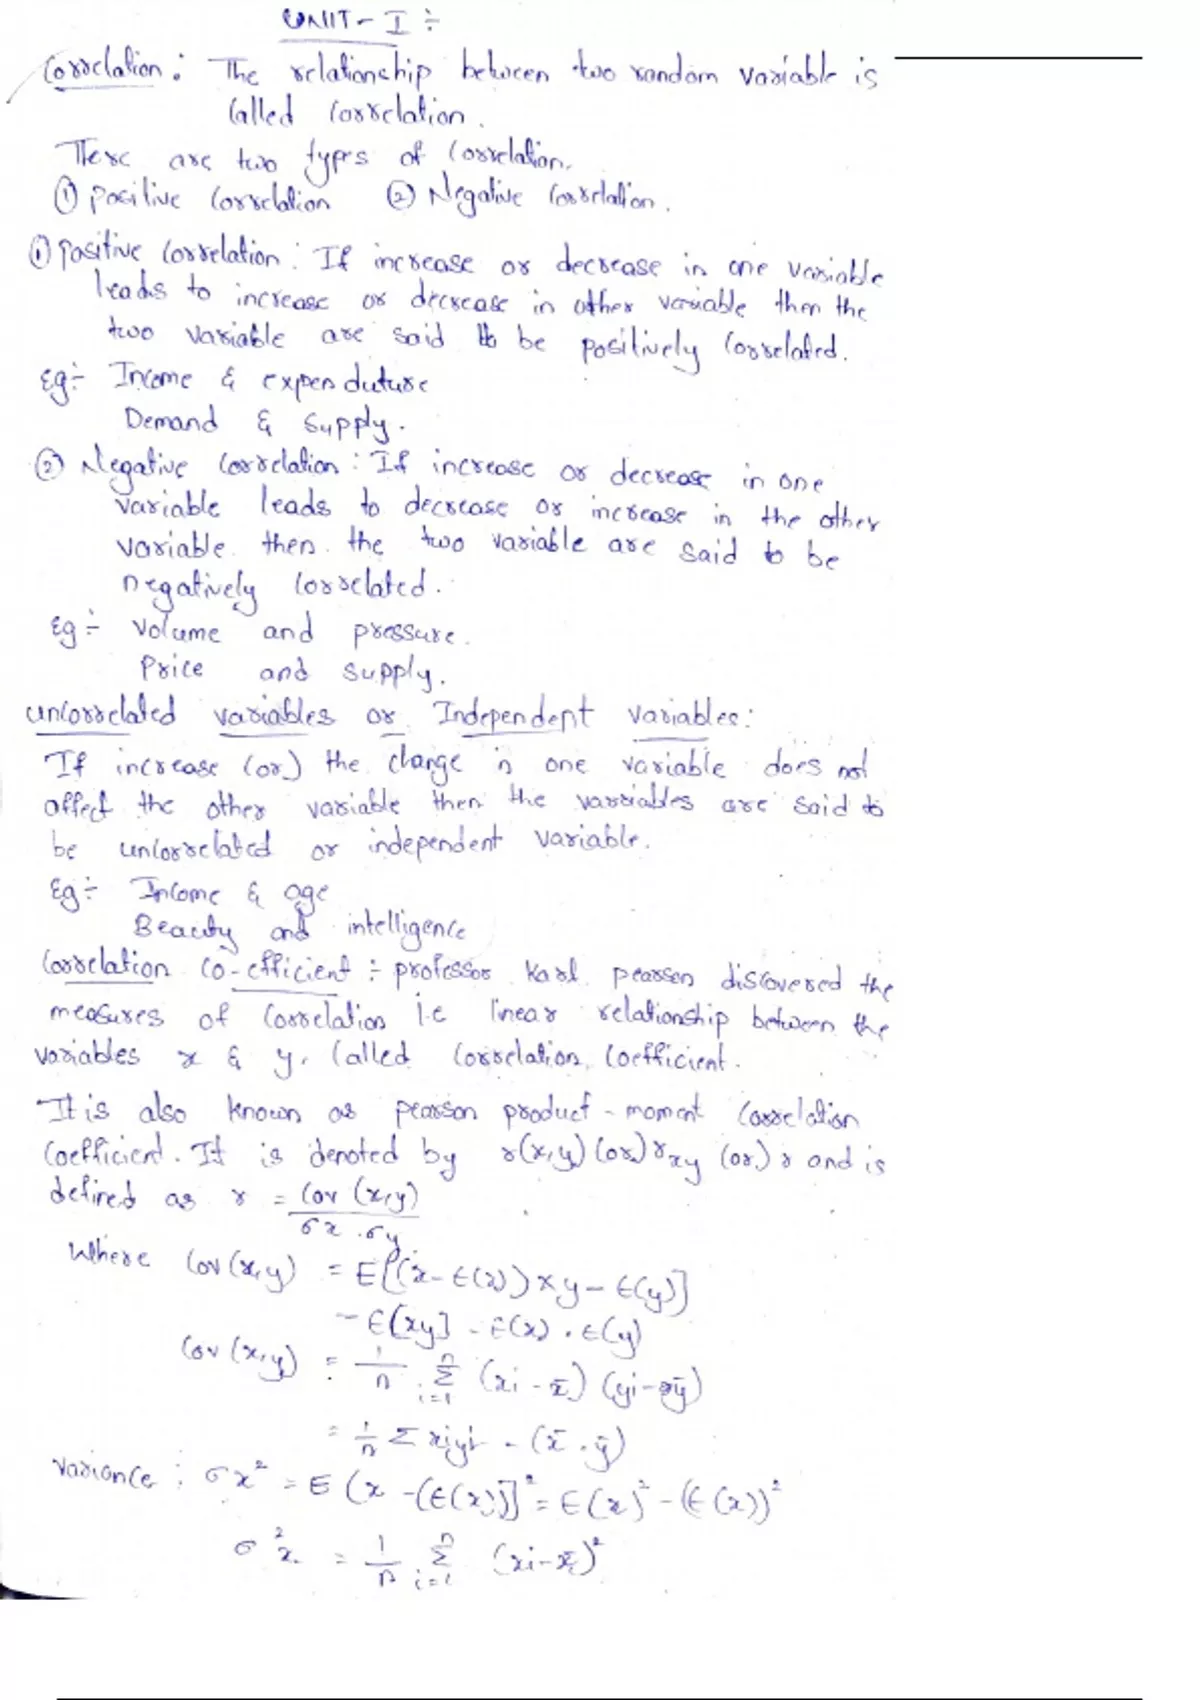 UNIT - I ÷
Correlation : The relationship between two random variable is
Called Correlation.
There are two types of Correlation.
① Positive Correlation ② Negative Correlation.
① Positive Correlation : If increase or decrease in one variable
leads to increase or decrease in other variable then the
two variable are said to be positively Correlated.
Eg ÷ Income & expenduture
Demand & Supply.
② Negative Correlation : If increase or decrease in one
variable leads to decrease or increase in the other
variable then the two variable are said to be
negatively Correlated.
Eg ÷ Volume and pressure.
Price and supply.
uncorrelated variables or Independent variables :
If increase (or) the change in one variable does not
affect the other variable then the variables are said to
be uncorrelated or independent variable.
Eg ÷ Income & age
Beauty and intelligence
Correlation Co-efficient ÷ professor Karl pearson discovered the
measures of Correlation i.e linear relationship between the
variables x & y. Called Correlation Coefficient.
It is also known as pearson product - moment Correlation
Coefficient. It is denoted by r(x,y) (or) rxy (or) r and is
defined as r = Cov (x,y) / σx . σy
Where Cov (x,y) = E[(x - E(x)) x y - E(y)]
- E[xy] - E(x) . E(y)
Cov (x,y) = 1/n Σ i=1 n (xi - x̄) (yi - ȳ)
= 1/n Σ xiyi - (x̄ . ȳ)
Variance : σx² = E (x - (E(x))]² = E(x)² - (E(x))²
σ²x = 1/n Σ i=1 n (xi - x̄)²